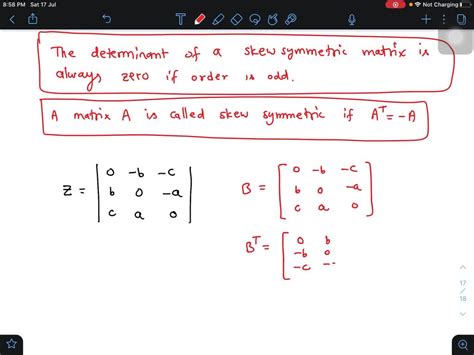 8:58 PM Sat 17 Jul
Not Charging
The determinant of a skew symmetric matrix is
always zero if order is odd.
A matrix A is called skew symmetric if Aᵀ = -A
Z = | 0 -b -c |
| b 0 -a |
| c a 0 |
B = [ 0 -b -c ]
[ b 0 -a ]
[ c a 0 ]
Bᵀ = [ 0 b
-b 0
-c -
17
18